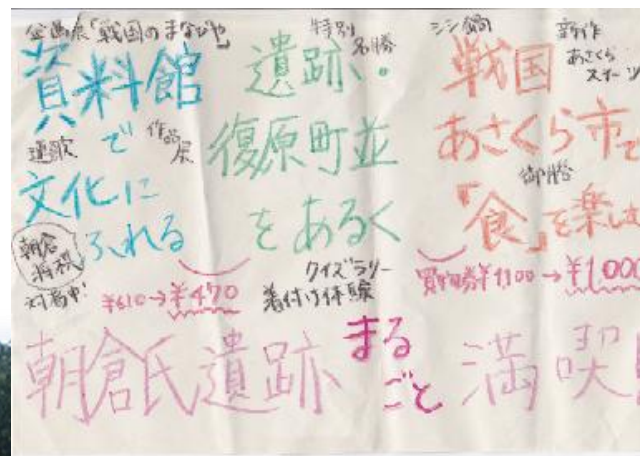 企画展「戦国のまなびや」
資料館
で
連歌
作品展
文化に
ふれる
朝倉将棋
対局中!
¥610→¥470
特別名勝
遺跡・
復原町並
をあるく
クイズラリー
着付け体験
シシ鍋
新作
あさくら
スイーツ
戦国
あさくら市で
御膳
「食」を楽しむ
買物券¥1100→¥1,000
朝倉氏遺跡 まるごと 満喫